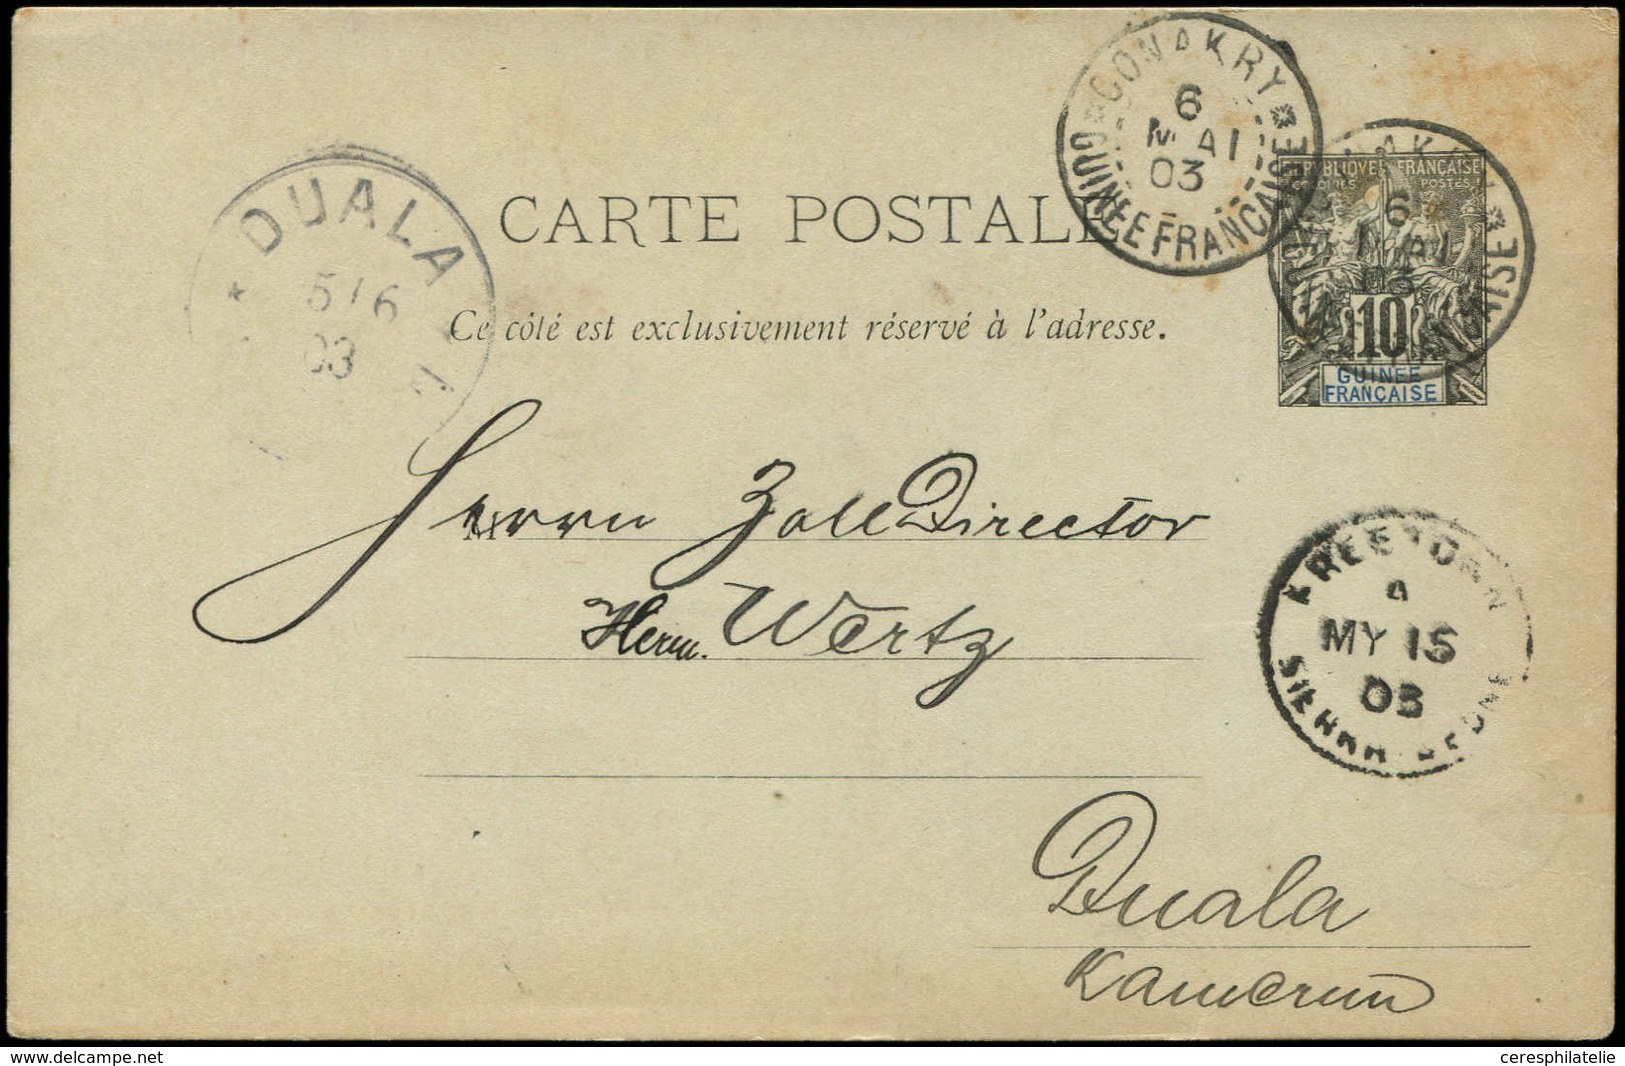 CONAKRY
6
MAI
03
GUINEE FRANCAISE
REPUBLIQUE FRANÇAISE
COLONIES POSTES
6
MAI
03
10
GUINEE
FRANÇAISE
DUALA
5/6
03
CARTE POSTALE
Ce côté est exclusivement réservé à l'adresse.
Herrn Zoll Director
Herm. Wertz
FREETOWN
A
MY 15
03
SIERRA LEONE
Duala
Kamerun
www.delcampe.net
ceresphilatelie